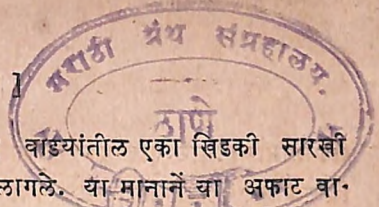 मराठी ग्रंथ संग्रहालय.
]
ठाणे
वाड्यांतील एका खिडकी सारखी
लागले. या मानानें या अफाट वा-